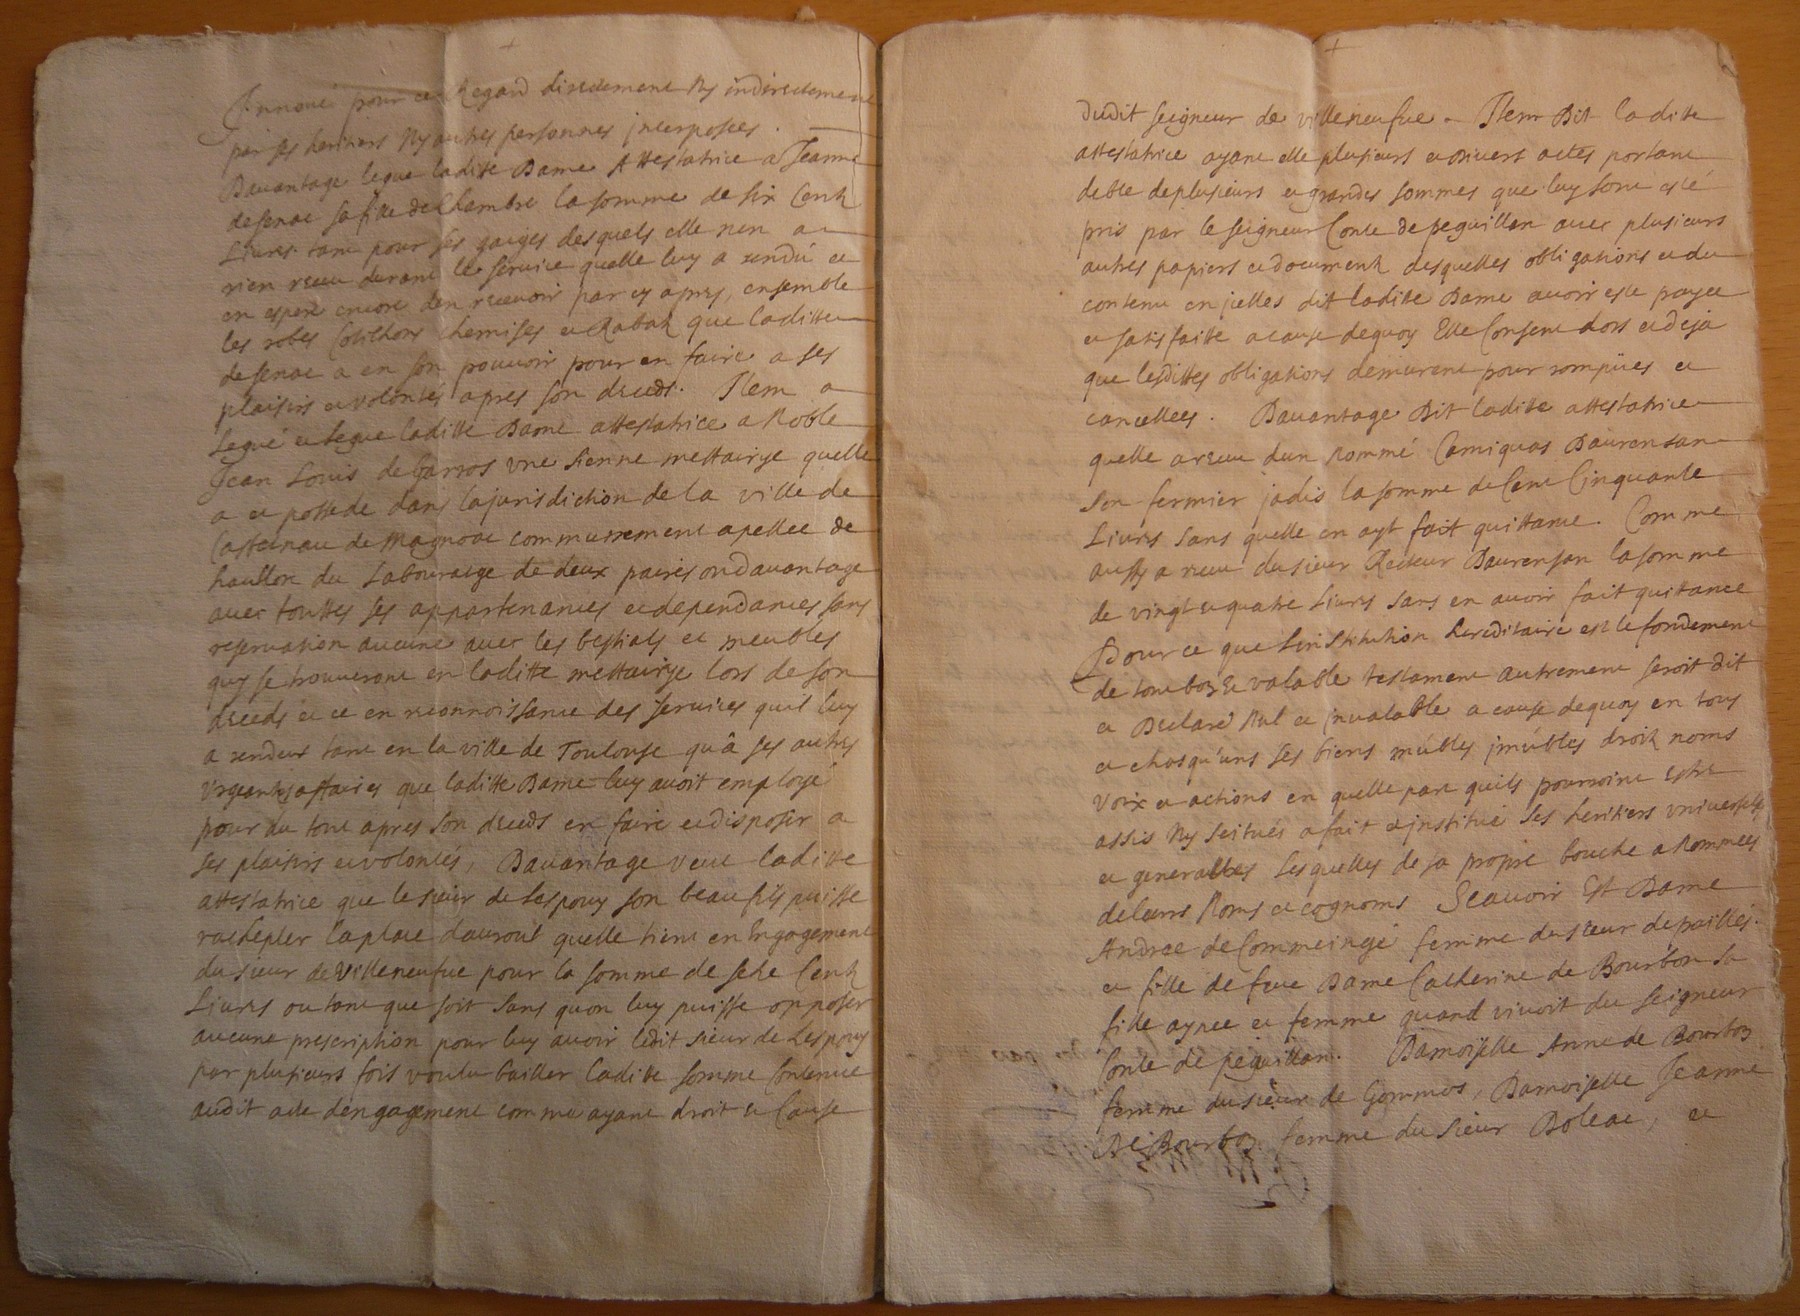 Innoué pour ce Regard directement Ny indirectement
par ses heritiers Ny autres personnes interposées.
Davantage legue laditte Dame Attestatrice a Jeanne
desenac sa fille de Chambre la somme de six Centz
Livres tant pour ses gaiges desquels elle nen a
rien receu durant le service quelle luy a rendú et
en espere encore den recevoir par cy apres, ensemble
les robes Cotilhons chemises et Rabatz que laditte
desenac a en son pouvoir pour en faire a ses
plaisirs et volontés apres son deceds. Item a
Legué et legue laditte Dame attestatrice a Noble
Jean Louis de Garros vne sienne mettairye quelle
a et possede dans la jurisdiction de la ville de
Castelnau de Magnoac communement apellee de
haullon du Labouraige de deux paires ou davantage
avec touttes ses appartenances et dependances sans
reservation aucune avec les bestials et meubles
quy se trouveront en laditte mettairye lors de son
deceds et ce en reconnoissance des services quil luy
a rendeus tant en la ville de Toulouse qu'â ses autres
Vrgeantes affaires que laditte Dame luy avoit employé
pour du tout apres son deceds en faire et disposer a
ses plaisirs et volontés, Davantage veut laditte
attestatrice que le sieur de Lespouy son beau fils puisse
rachepter la place dauroul quelle tient en Engagement
du sieur de Villeneufue pour la somme de setze Centz
Livres ou tant que soit sans quon luy puisse opposer
aucune prescription pour luy avoir ledit sieur de Lespouy
par plusieurs fois voulu bailler ladite somme Contenue
audit acte dengagement comme ayant droit et Cause
dudit seigneur de villeneufue. Item Dit laditte
attestatrice ayant elle plusieurs et divers actes portant
debte de plusieurs et grandes sommes que luy sont esté
pris par le seigneur Conte de peguillan avec plusieurs
autres papiers et documentz desquelles obligations et du
contenu en jcelles dit ladite Dame avoir este payee
et satisfaitte a cause dequoy Elle Consent dors et deja
que lesdittes obligations demurent pour rompües et
cancellees. Davantage Dit ladite attestatrice
quelle a receu dun Nommé Camiquas Daurensan
son fermier jadis la somme de Cent Cinquante
Livres sans quelle en ayt fait quittance. Comme
aussy a receu du sieur Recteur Daurensan la somme
de vingt et quatre Livres sans en avoir fait quittance
Pour ce que Linstitution hereditaire est le fondement
de tout bon et valable testament autrement seroit dit
et Declaré Nul et jnvalable a cause dequoy en tous
et chasqu'uns ses biens múbles jmúbles droitz noms
Voix et actions en quelle part quils pourroint estre
assis Ny seitués a fait et jnstitué ses heritiers vniverselles
et generalles Lesquelles de sa propre bouche a Nommees
de leurs Noms et cognoms Scauoir Est Dame
Andree de Commeingé femme du sieur de paillés.
et fille de feue Dame Catherine de Bourbon sa
fille aynee et femme quand vivoit du seigneur
Conte de peguillan. Damoiselle Anne de Bourbon
femme du sieur de Gommos, Damoiselle Jeanne
De Bourbon femme du sieur Boleac, et